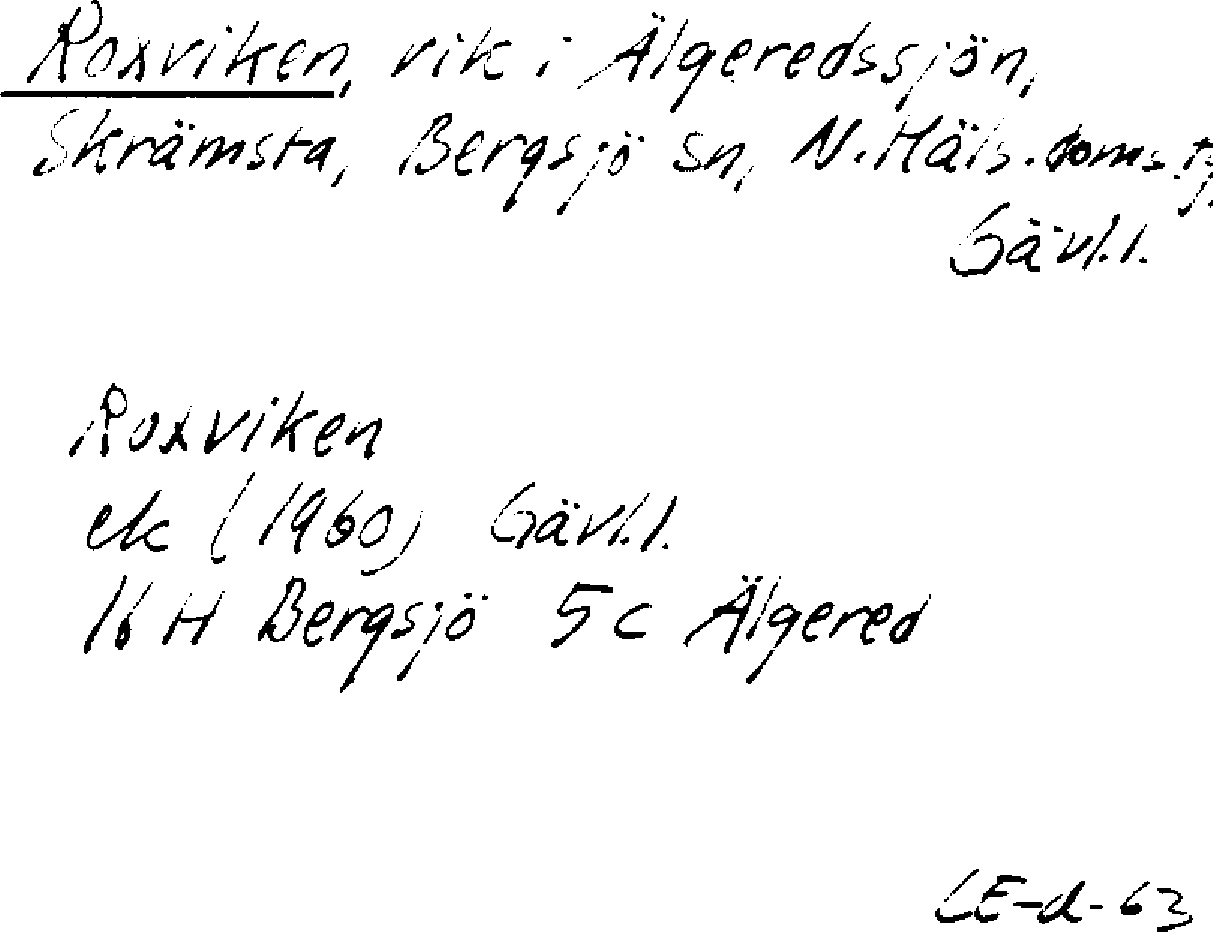 Roxviken, vik i Älgeredssjön,
Skrämsta, Bergsjö sn, N. Häls. doms.tj.
Gävl.l.
Roxviken
ek (1960) Gävl.l.
16 H Bergsjö 5 c Älgered
LE-d-63